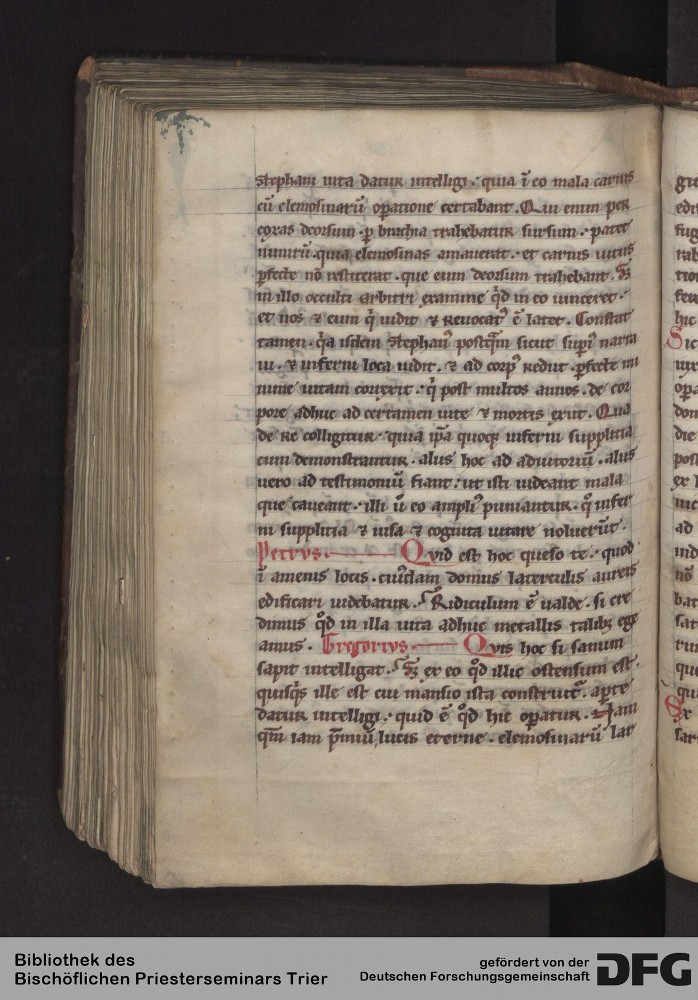 stephani uita datur intelligi · quia ĩ eo mala carnis
cũ elemosinarũ opatione certabant. Qui enim per
coxas deorsum · ꝑ brachia trahebatur sursum · patet
nimirũ · quia elemosinas amauerat · et carnis uiciis
ꝑfecte nõ restiterat · que eum deorsum trahebant. Sꝫ
in illo occulti arbitri examine qd in eo uinceret ·
et nos ⁊ eum q̃ uidit ⁊ reuocatꝰ ẽ latet. Constat
tamen · q̃a isdem stephanꝰ postq̃m sicut supiꝰ narra
ui · ⁊ inferni loca uidit · ⁊ ad corpꝰ rediit · ꝑfecte mi
nime uitam correxit · q̃ post multos annos · de cor
pore adhuc ad certamen uite ⁊ mortis exiit. Qua
de re colligitur · quia ip̃a quoqꝫ inferni supplitia
cum demonstrantur · aliis hoc ad adiutoriũ · aliis
uero ad testimoniũ fiant · ut isti uideant mala
que caueant · illi ũ eo ampliꝰ puniantur · q̃ infer
ni supplitia ⁊ uisa ⁊ cognita uitare noluerũt ·
Petrus · Quid est hoc queso te · quod
ĩ amenis locis · cuiꝰdam domus laterculis aureis
edificari uidebatur. Ridiculum ẽ ualde · si cre
dimus qd in illa uita adhuc metallis talibꝫ ege
amus. Gregorius · Quis hoc si sanum
sapit intelligat. Sꝫ ex eo qd illic ostensum est ·
quisq̃s ille est cui mansio ista construitᷣ · aꝑte
datur intelligi · quid ẽ qd hic opatur. Nam
q̃m iam p̃miũ lucis eterne · elemosinarũ lar
Bibliothek des
Bischöflichen Priesterseminars Trier
gefördert von der
Deutschen Forschungsgemeinschaft
DFG